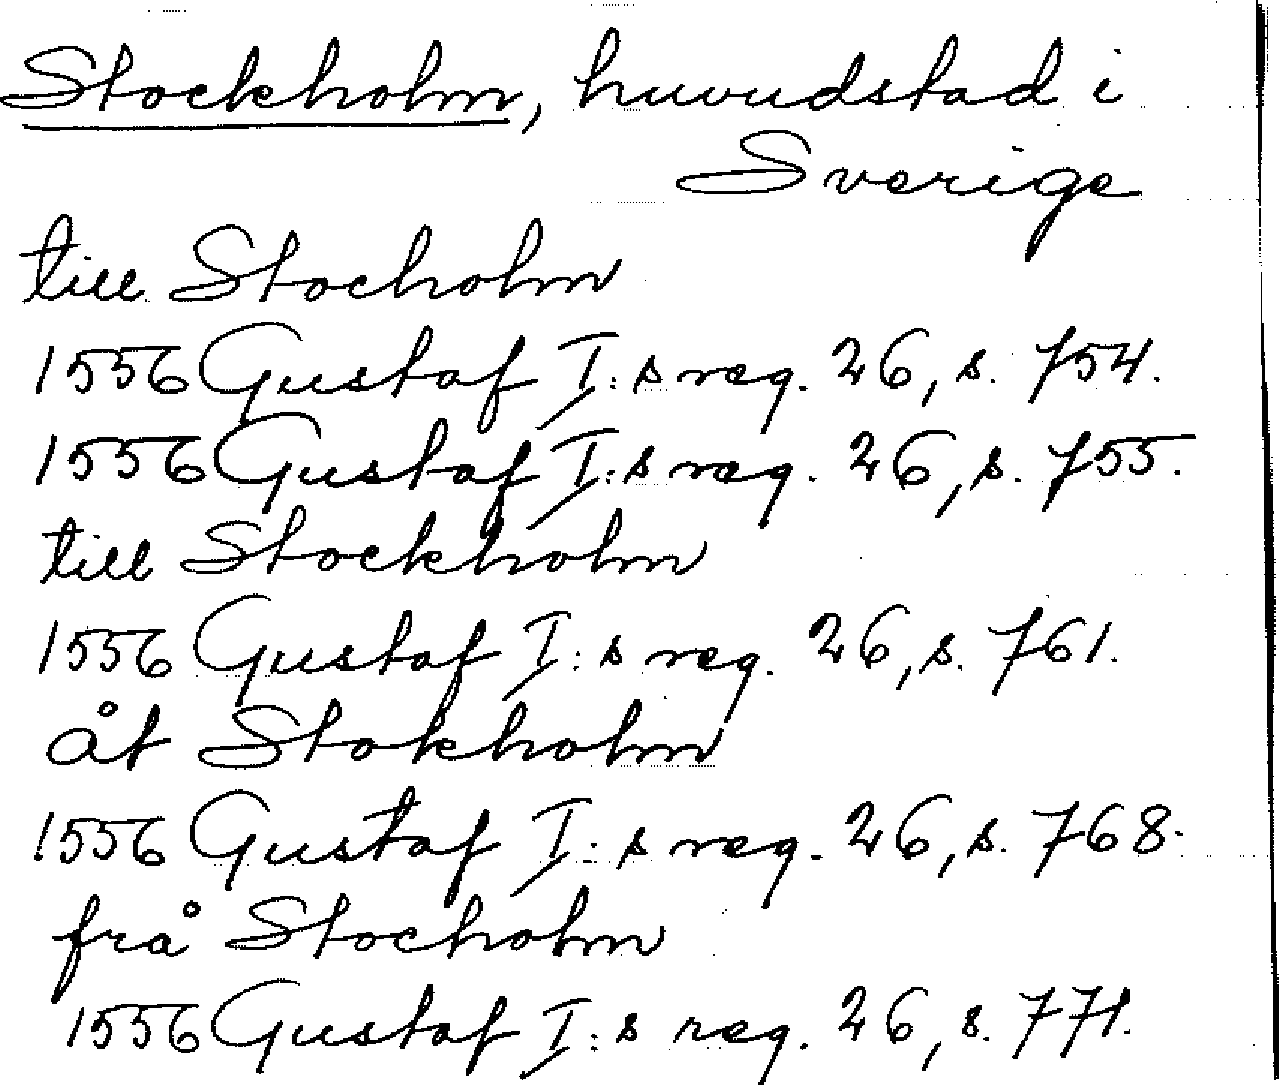 Stockholm, huvudstad i
Sverige
till Stocholm
1556 Gustaf I:s reg. 26, s. 754.
1556 Gustaf I:s reg. 26, s. 755.
till Stockholm
1556 Gustaf I:s reg. 26, s. 761.
åt Stokholm
1556 Gustaf I:s reg. 26, s. 768.
frå Stocholm
1556 Gustaf I:s reg. 26, s. 771.